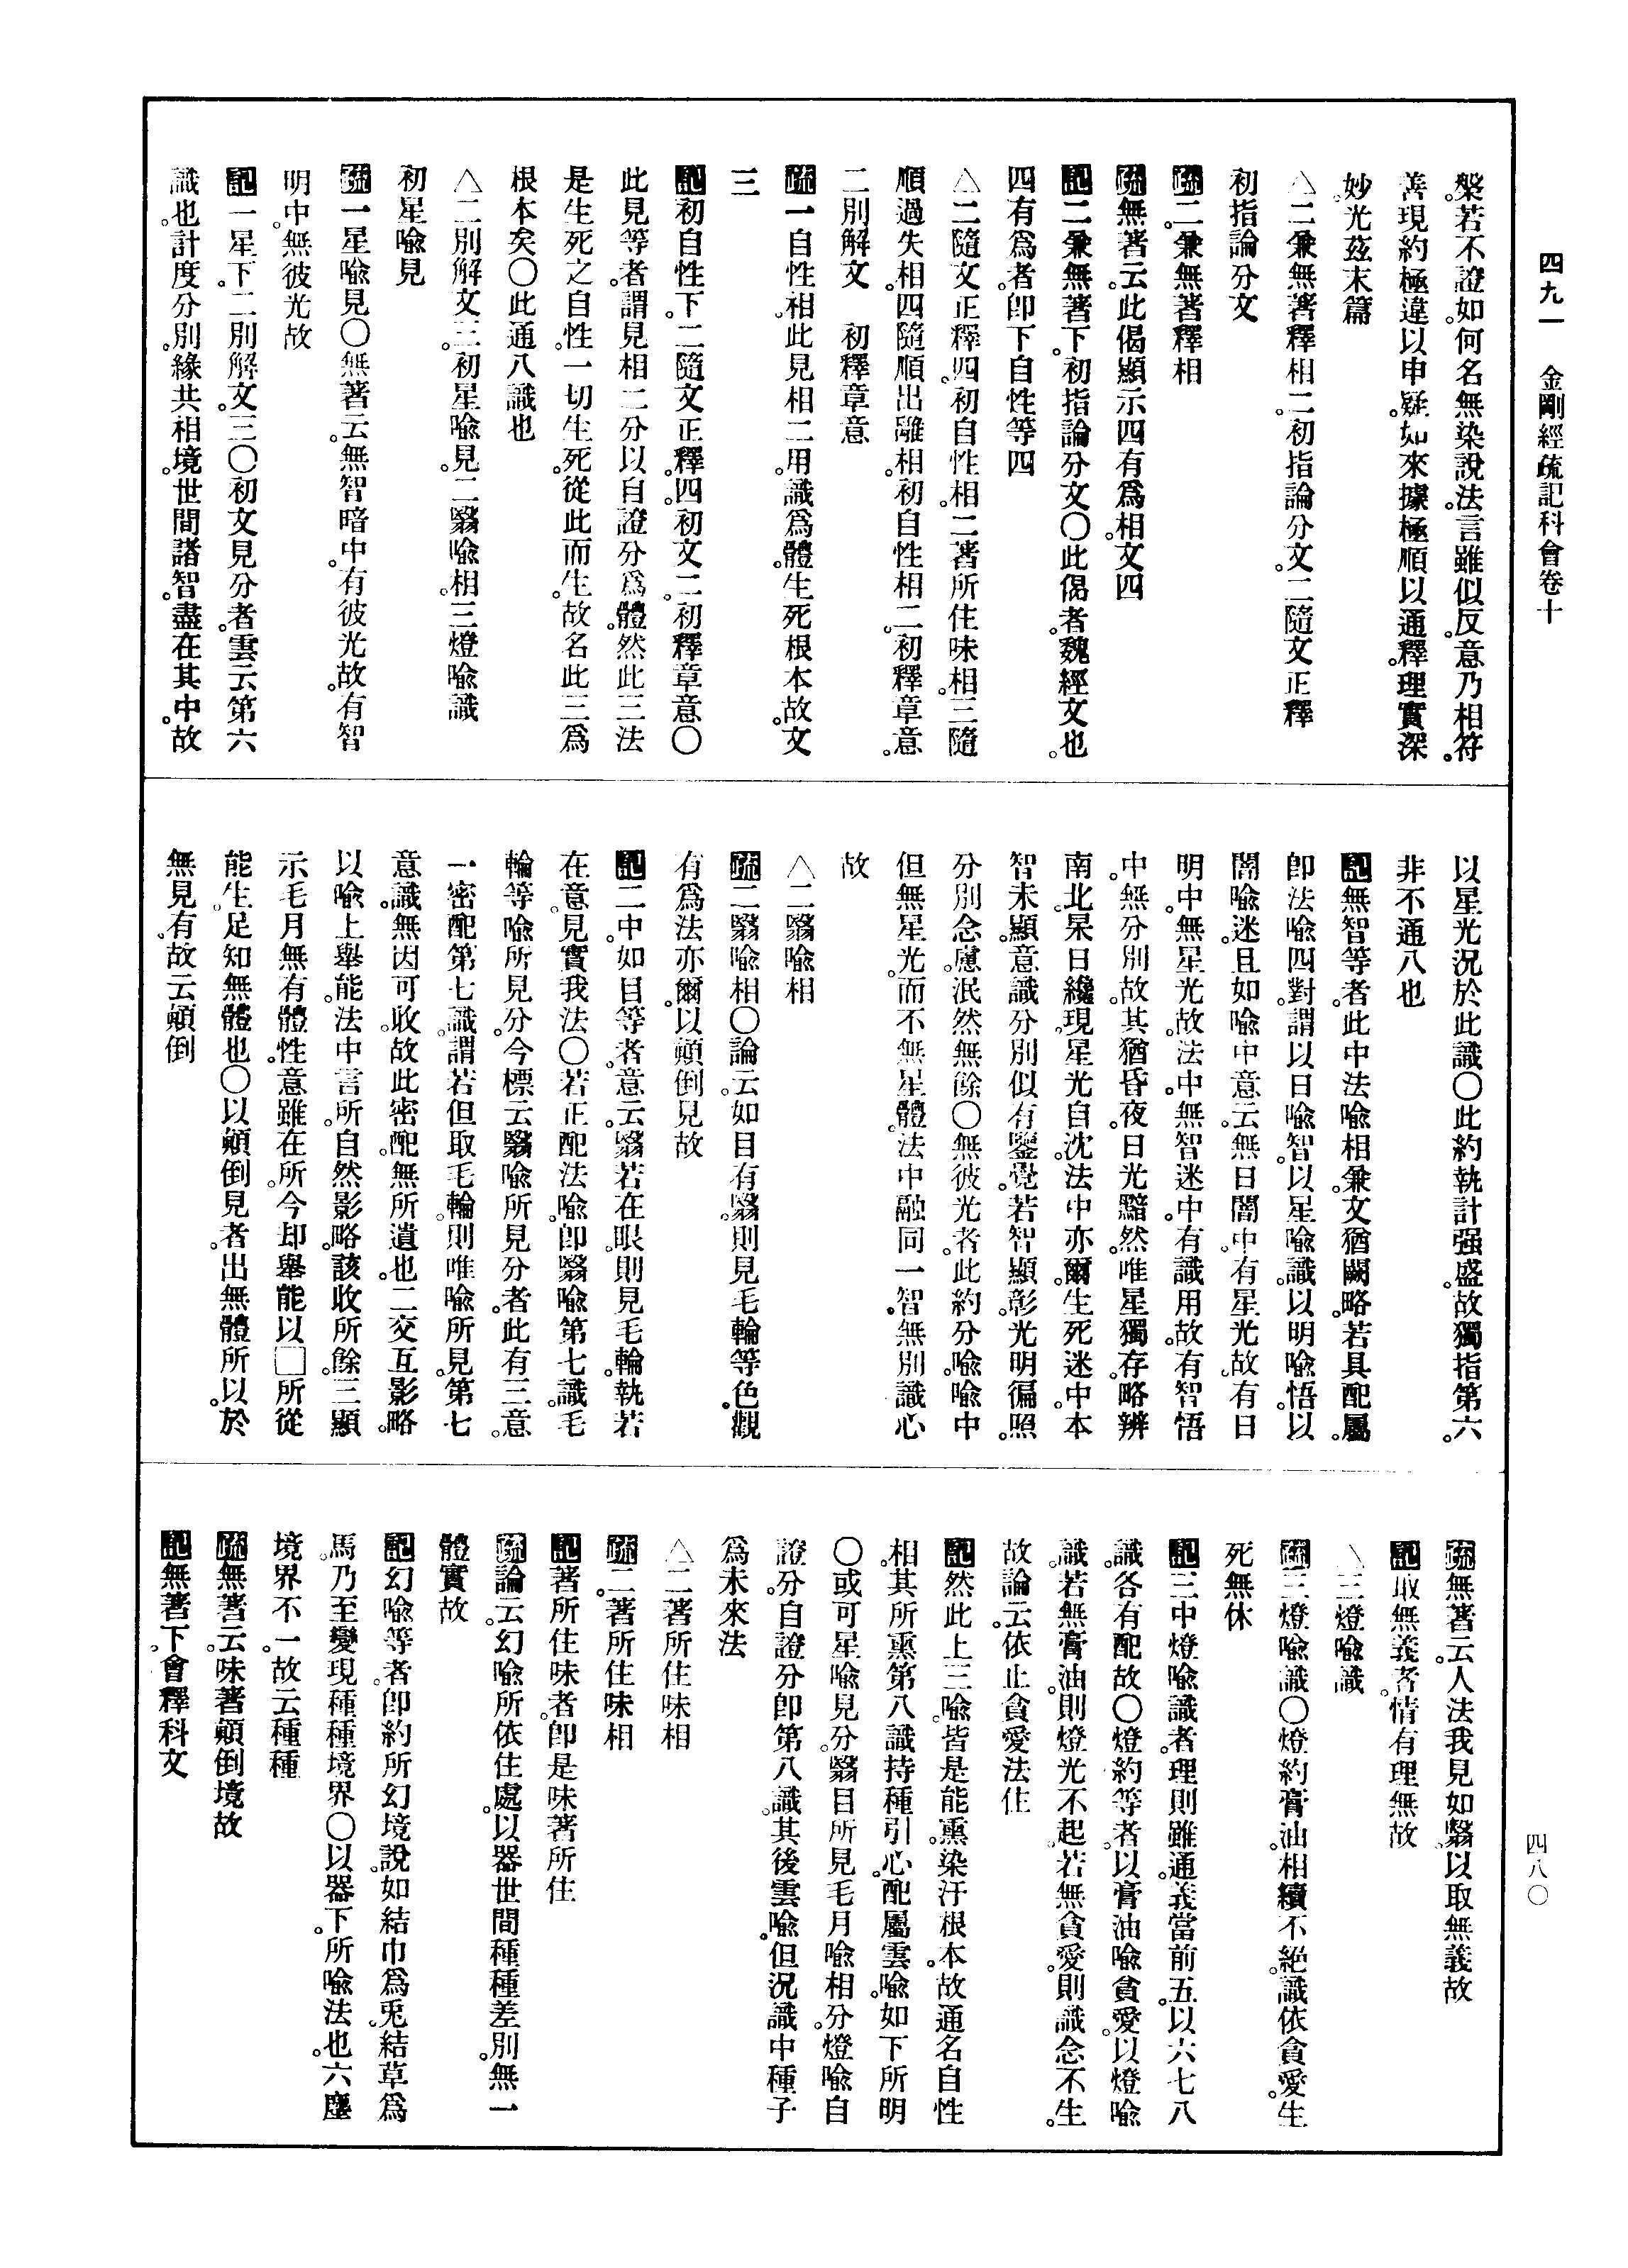 四九一　金剛經疏記科會卷十
槃。若不證。如何名無染說法。言雖似反。意乃相符。
善現約極違以申疑。如來據極順以通釋。理實深
妙。光茲末篇
△二兼無著釋相二。初指論分文。二隨文正釋
初指論分文
疏二。兼無著釋相
疏無著云。此偈顯示四有爲相。文四
記二兼無著下。初指論分文〇此偈者。魏經文也。
四有爲者。卽下自性等四
△二隨文正釋四。初自性相。二著所住味相。三隨
順過失相。四隨順出離相。初自性相二。初釋章意。
二別解文　初釋章意
疏一自性相。此見相二。用識爲體。生死根本故。文
三
記初自性下。二隨文正釋。四。初文二。初釋章意〇
此見等者。謂見相二分以自證分爲體。然此三法
是生死之自性。一切生死。從此而生。故名此三爲
根本矣〇此通八識也
△二別解文三。初星喩見。二翳喩相。三燈喩識
初星喩見
疏一星喩見〇無著云。無智暗中。有彼光故。有智
明中。無彼光故
記一星下。二別解文。三〇初文見分者。雲云第六
識也。計度分別。緣共相境。世間諸智。盡在其中。故
以星光況於此識〇此約執計强盛。故獨指第六。
非不通八也
記無智等者。此中法喩相兼。文猶闕略。若具配屬。
卽法喩四對。謂以日喩智。以星喩識。以明喩悟。以
闇喩迷。且如喩中意云。無日闇中。有星光故。有日
明中。無星光故。法中。無智迷中。有識用故。有智悟
中。無分別故。其猶昏夜。日光黯然。唯星獨存。略辨
南北。杲日纔現。星光自沈。法中亦爾。生死迷中。本
智未顯。意識分別。似有鑒覺。若智顯彰。光明徧照。
分別念慮。泯然無餘〇無彼光者。此約分喩。喩中
但無星光。而不無星體。法中融同一智。無別識心
故
△二翳喩相
疏二翳喩相〇論云。如目有翳。則見毛輪等色。觀
有爲法亦爾。以顚倒見故
記二中如目等者。意云。翳若在眼。則見毛輪。執若
在意。見實我法〇若正配法喩。卽翳喩第七識。毛
輪等喩所見分。今標云翳喩所見分者。此有三意。
一密配第七識。謂若但取毛輪。則唯喩所見。第七
意識。無因可收。故此密配。無所遺也。二交互影略。
以喩上舉能。法中言所。自然影略。該收所餘。三顯
示毛月無有體性。意雖在所。今却舉能。以□所從
能生。足知無體也〇以顚倒見者。出無體所以。於
無見有。故云顚倒
疏無著云。人法我見如翳。以取無義故
記取無義者。情有理無故
△三燈喩識
疏三燈喩識〇燈約膏油。相續不絕。識依貪愛。生
死無休
記三中燈喩識者。理則雖通。義當前五。以六七八
識。各有配故〇燈約等者。以膏油喩貪愛。以燈喩
識。若無膏油。則燈光不起。若無貪愛。則識念不生。
故論云。依止貪愛法住
記然此上三喩。皆是能熏。染汙根本。故通名自性
相。其所熏第八識。持種引心。配屬雲喩。如下所明
〇或可星喩見分。翳目所見毛月喩相分。燈喩自
證分。自證分卽第八識。其後雲喩。但況識中種子
爲未來法
△二著所住味相
疏二。著所住味相
記著所住味者。卽是味著所住
疏論云。幻喩所依住處。以器世間種種差別。無一
體實故
記幻喩等者。卽約所幻境說。如結巾爲兎。結草爲
馬。乃至變現種種境界〇以器下。所喩法也。六塵
境界不一。故云種種
疏無著云。味著顚倒境故
記無著下。會釋科文
四八〇